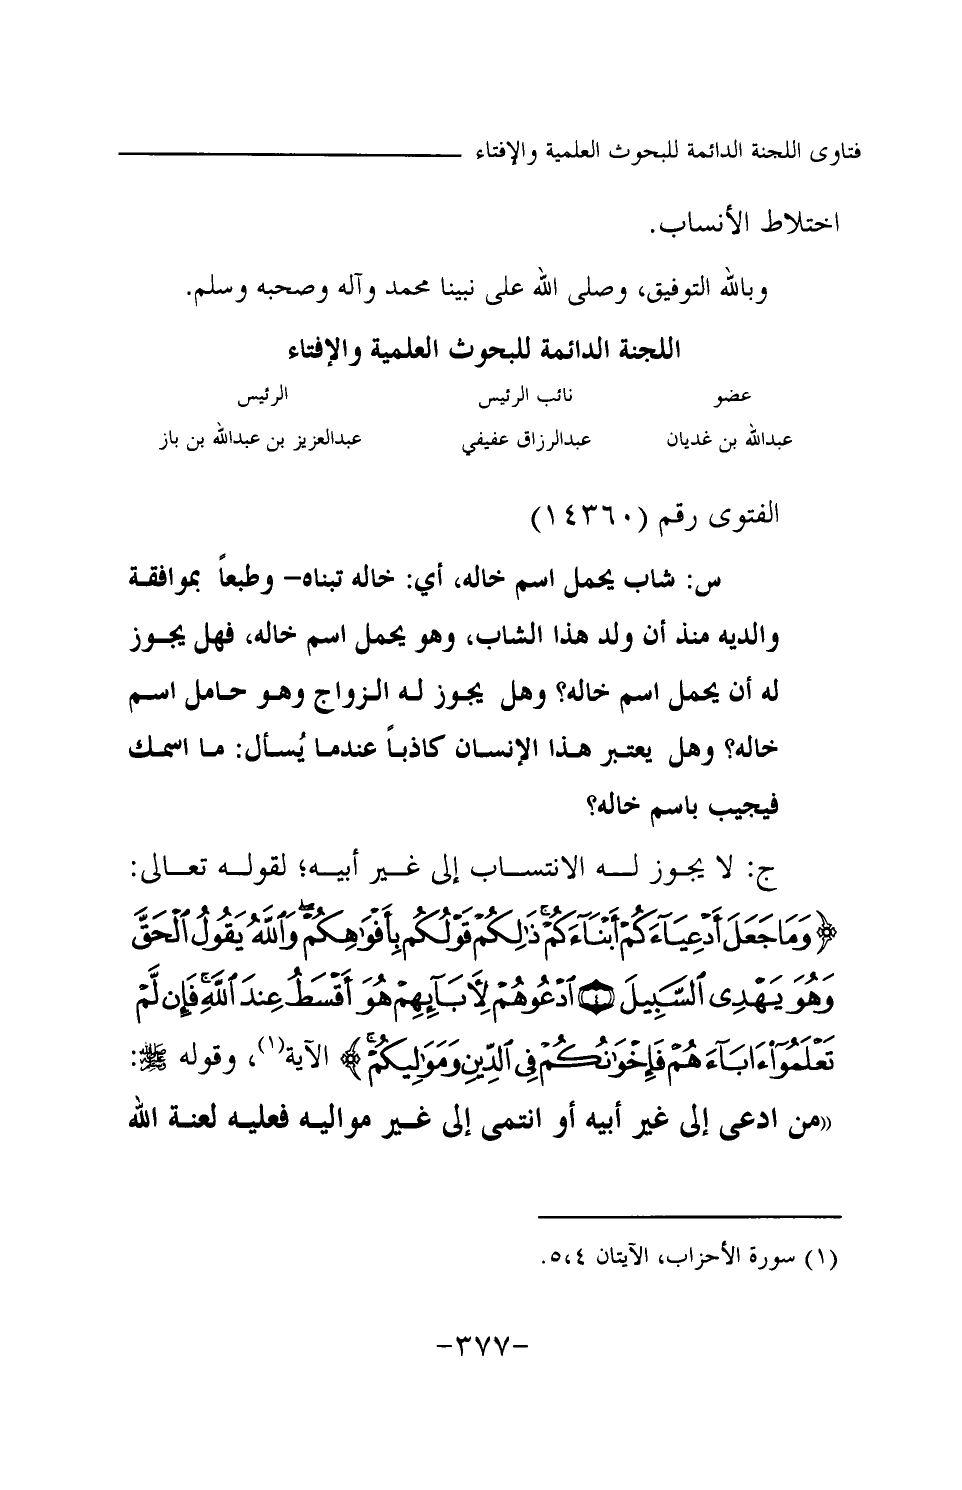 فتاوى اللجنة الدائمة للبحوث العلمية والإفتاء
اختلاط الأنساب.
وبالله التوفيق، وصلى الله على نبينا محمد وآله وصحبه وسلم.
اللجنة الدائمة للبحوث العلمية والإفتاء
عضو نائب الرئيس الرئيس
عبدالله بن غديان عبدالرزاق عفيفي عبدالعزيز بن عبدالله بن باز
الفتوى رقم (١٤٣٦٠)
س: شاب يحمل اسم خاله، أي: خاله تبناه- وطبعاً بموافقة
والديه منذ أن ولد هذا الشاب، وهو يحمل اسم خاله، فهل يجوز
له أن يحمل اسم خاله؟ وهل يجوز له الزواج وهو حامل اسم
خاله؟ وهل يعتبر هذا الإنسان كاذباً عندما يُسأل: ما اسمك
فيجيب باسم خاله؟
ج: لا يجوز له الانتساب إلى غير أبيه؛ لقوله تعالى:
﴿وَمَا جَعَلَ أَدْعِيَآءَكُمْ أَبْنَآءَكُمْ ۚ ذَٰلِكُمْ قَوْلُكُم بِأَفْوَٰهِكُمْ ۖ وَٱللَّهُ يَقُولُ ٱلْحَقَّ
وَهُوَ يَهْدِى ٱلسَّبِيلَ ۝٤ ٱدْعُوهُمْ لِأَبَآئِهِمْ هُوَ أَقْسَطُ عِندَ ٱللَّهِ ۚ فَإِن لَّمْ
تَعْلَمُوٓا۟ ءَابَآءَهُمْ فَإِخْوَٰنُكُمْ فِى ٱلدِّينِ وَمَوَٰلِيكُمْ ۚ﴾ الآية(١)، وقوله ﷺ:
«من ادعى إلى غير أبيه أو انتمى إلى غير مواليه فعليه لعنة الله
(١) سورة الأحزاب، الآيتان ٤،٥.
-٣٧٧-